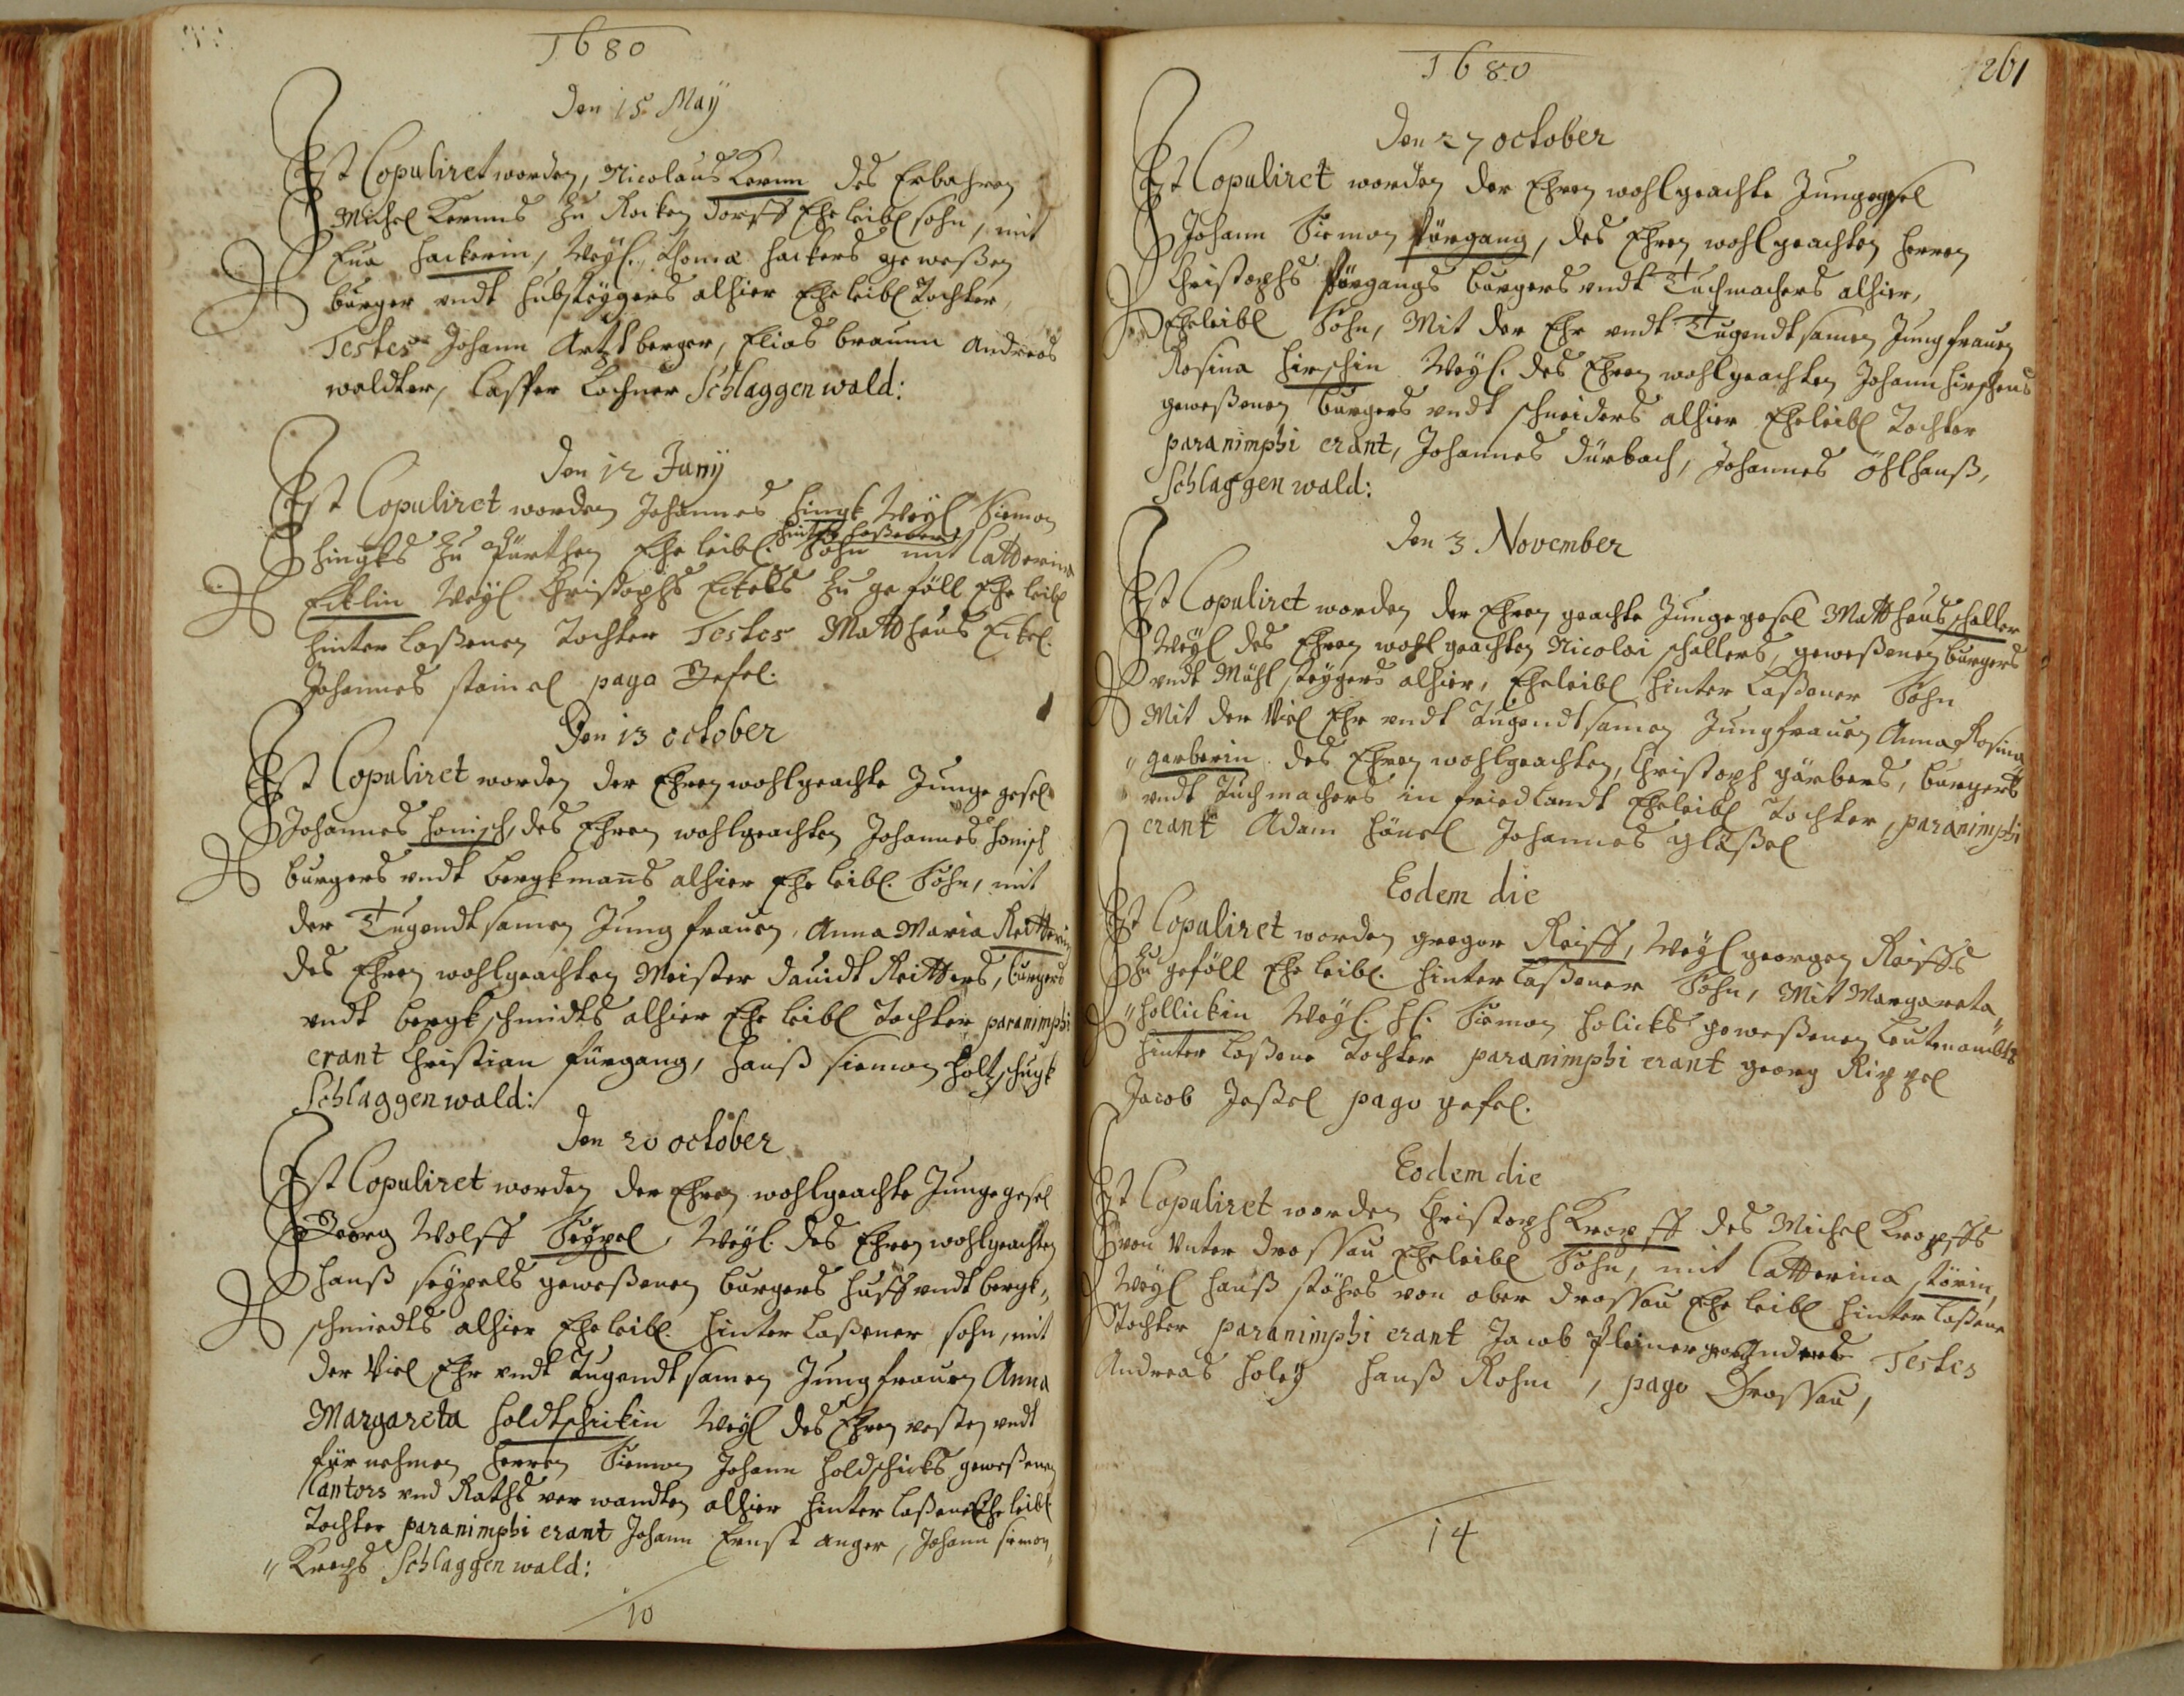 1680
Den 15 May
Ist Copuliret worden, Nicolaus Kernn des Erbahren
Michel Kernns zu Rocken dorff Ehe leibl sohn, mit
Eua Hackerin, Weyl. Thoma Hackers geweßen
burger undt hubsteygers alhier Ehe leibl Tochter,
Testes Johann Artzberger, Elias braunn Andreas
waldter, Casper Lochner Schlaggenwald:
Den 12 Juny
Ist Copuliret worden Johannes Hingk Weyl Siemon
hinterlaßener
Hingks zu Pürthen Ehe leibl. Sohn mit Catterina
Ecklin Weyl Christophs Eckels zu geföll Ehe leibl
hinter laßenen Tochter Testes Matthäus Eckel.
Johannes stainel pago Gefel.
Den 13 october
Ist Copuliret worden der Ehren wohlgeachte Junge gesel
Johannes Honisch, des Ehren wohlgeachten Johannes Honisch
burgers undt bergkmans alhier Ehe leibl. Sohn, mit
der Tugendtsamen Jungfrauen, Anna Maria Reitterin
des Ehren wohlgeachten Meister Dauidt Reitters, burgers
undt bergkschmidts alhier Ehe leibl Tochter paranimphi
erant Christian fürgang, Hanß siemon Holtzschugk
Schlaggenwald:
Den 20 october
Ist Copuliret worden der Ehren wohlgeachte Junge gesel
Georg Wolff Seypel, Weyl. des Ehren wohlgeachten
Hanß seypels geweßenen burgers Huff undt bergk,
schmiedts alhier Eheleibl. hinter laßener sohn, mit
der Viel Ehr undt Tugendtsamen Jungfrauen Anna
Margareta Holdtschickin Weyl des Ehren vesten undt
für nehmen Herren Siemon Johann Holdschicks geweßenen
Cantors und Raths verwandten alhier hinter laßene Ehe leibl.
Tochter paranimphi erant Johann Ernst Anger, Johann siemon,
" Krechs Schlaggenwald:
10
1680
261
Den 27 october
Ist Copuliret worden der Ehren wohlgeachte Jungegesel
Johann Siemon fürgang, des Ehren wohlgeachten Herren
Christophs fürgangs burgers undt Tuchmachers alhier,
Eheleibl Sohn, Mit der Ehr undt Tugendtsamen Jungfrauen
Rosina Hirschin Weyl. des Ehren wohlgeachten Johann Hirschens
geweßenen burgers undt schneiders alhier Eheleibl Tochter
paranimphi erant, Johannes Dürbach, Johannes öhlhanß,
Schlaggenwald:
Den 3 November
Ist Copuliret worden der Ehren geachte Junge gesel Matthäus schaller
Weyl des Ehren wohlgeachten Nicolai schallers, geweßenen burgers
undt Mühlsteygers alhier, Eheleibl hinter Laßener Sohn
Mit der Viel Ehr undt Tugendtsamen Jungfrauen Anna Rosina
" garberin des Ehren wohlgeachten, Christoph gärbers, burgers
undt Tuchmachers in friedlandt Eheleibl Tochter, paranimphi
erant Adam Hönel Johannes gläßel
Eodem die
Ist Copuliret worden gregor Reiff, Weyl georgen Reiffs
zu geföll Eheleibl. hinterlaßener Sohn, Mit Margareta,
" Hollickin Weyl. H. Siemon Holicks geweßenen Leutenambts
hinter laßene Tochter paranimphi erant georg Rippel
Jacob Jeßel pago gefel.
Eodem die
Ist Copuliret worden Christoph Kropff des Michel Kropffs
von Unter Drossau Eheleibl Sohn, mit Catterina störin,
Weyl Hanß stöhrs von ober Drossau Ehe leibl hinterlaßene
Tochter paranimphi erant Jacob Pleiner Testes
Andreas Holey Hanß Rohm, pago Drossau,
14